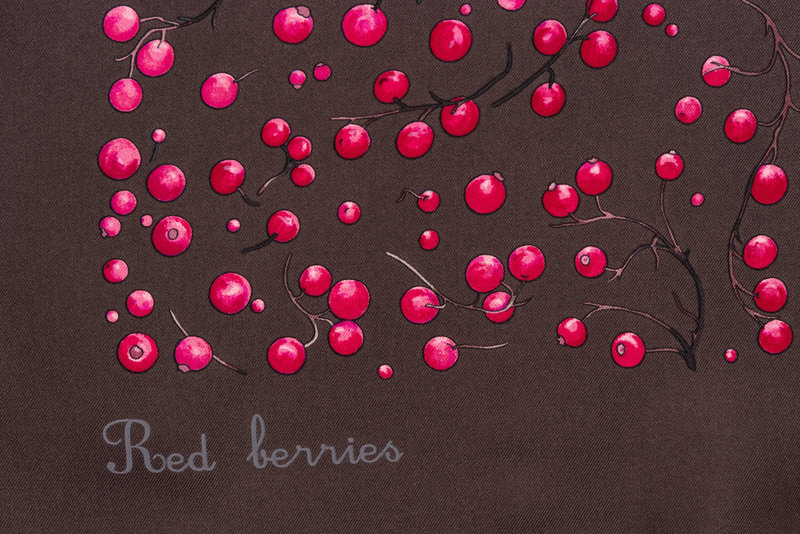 Red berries